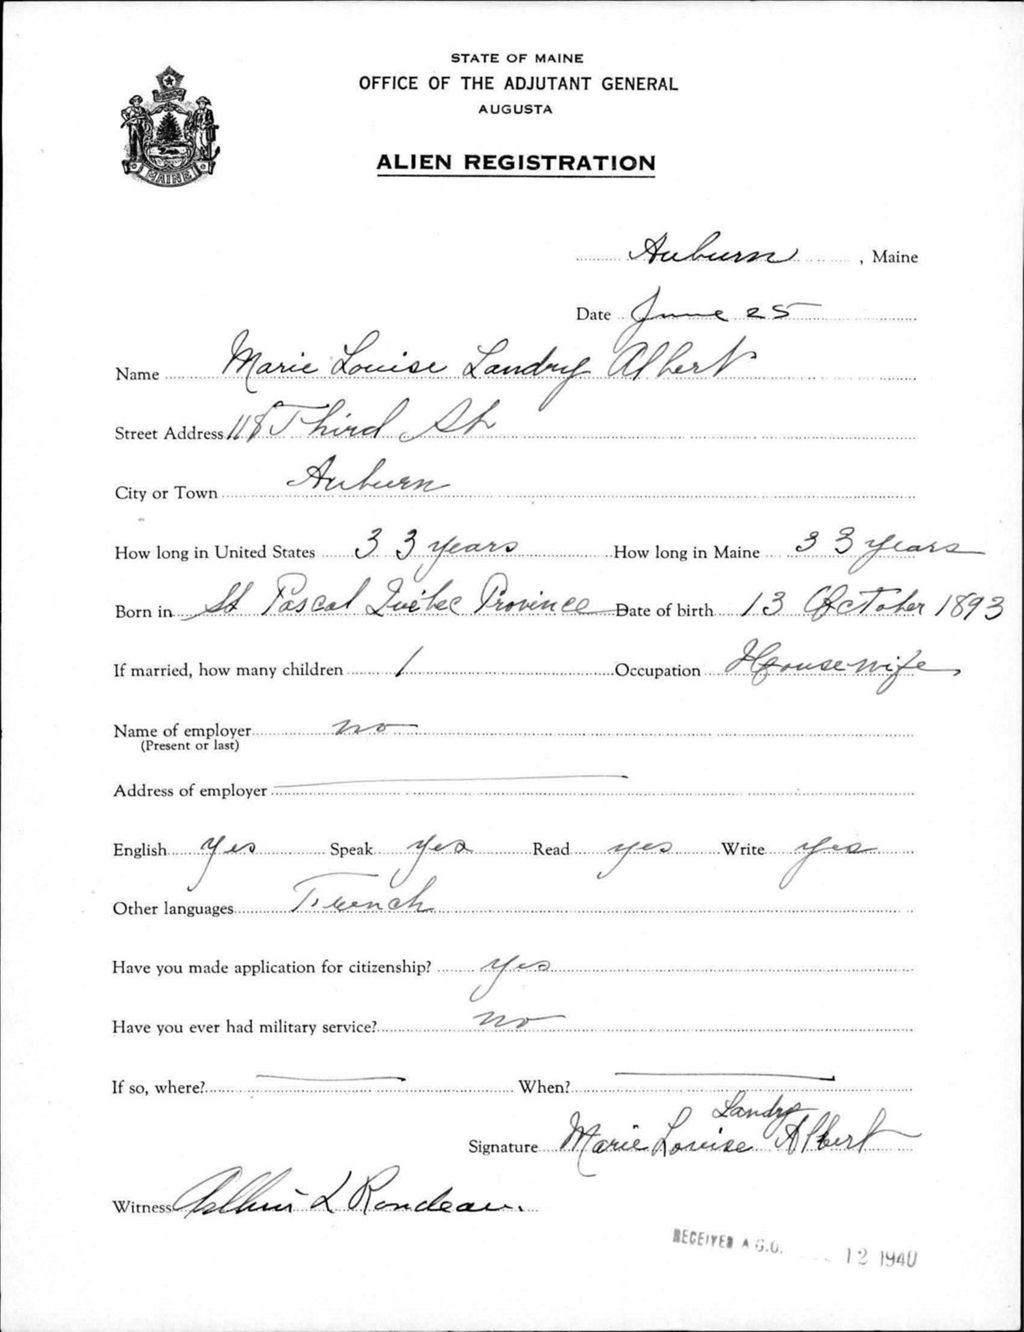 STATE OF MAINE
OFFICE OF THE ADJUTANT GENERAL
AUGUSTA
ALIEN REGISTRATION
MAINE
Auburn, Maine
Date June 25
Name Marie Louise Landry Albert
Street Address 118 Third St
City or Town Auburn
How long in United States 33 years How long in Maine 33 years
Born in St Pascal Quebec Province Date of birth 13 October 1893
If married, how many children 1 Occupation Housewife
Name of employer no
(Present or last)
Address of employer
English yes Speak yes Read yes Write yes
Other languages French
Have you made application for citizenship? yes
Have you ever had military service? no
If so, where? When?
Landry
Signature Marie Louise Albert
Witness Arthur L Rondeau.
RECEIVED A.G.O. 12 1940